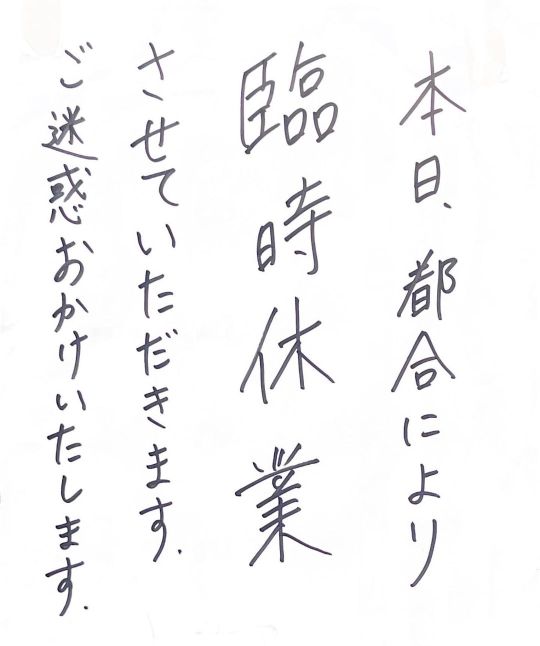 本日、都合により
臨時休業
させていただきます.
ご迷惑おかけいたします.